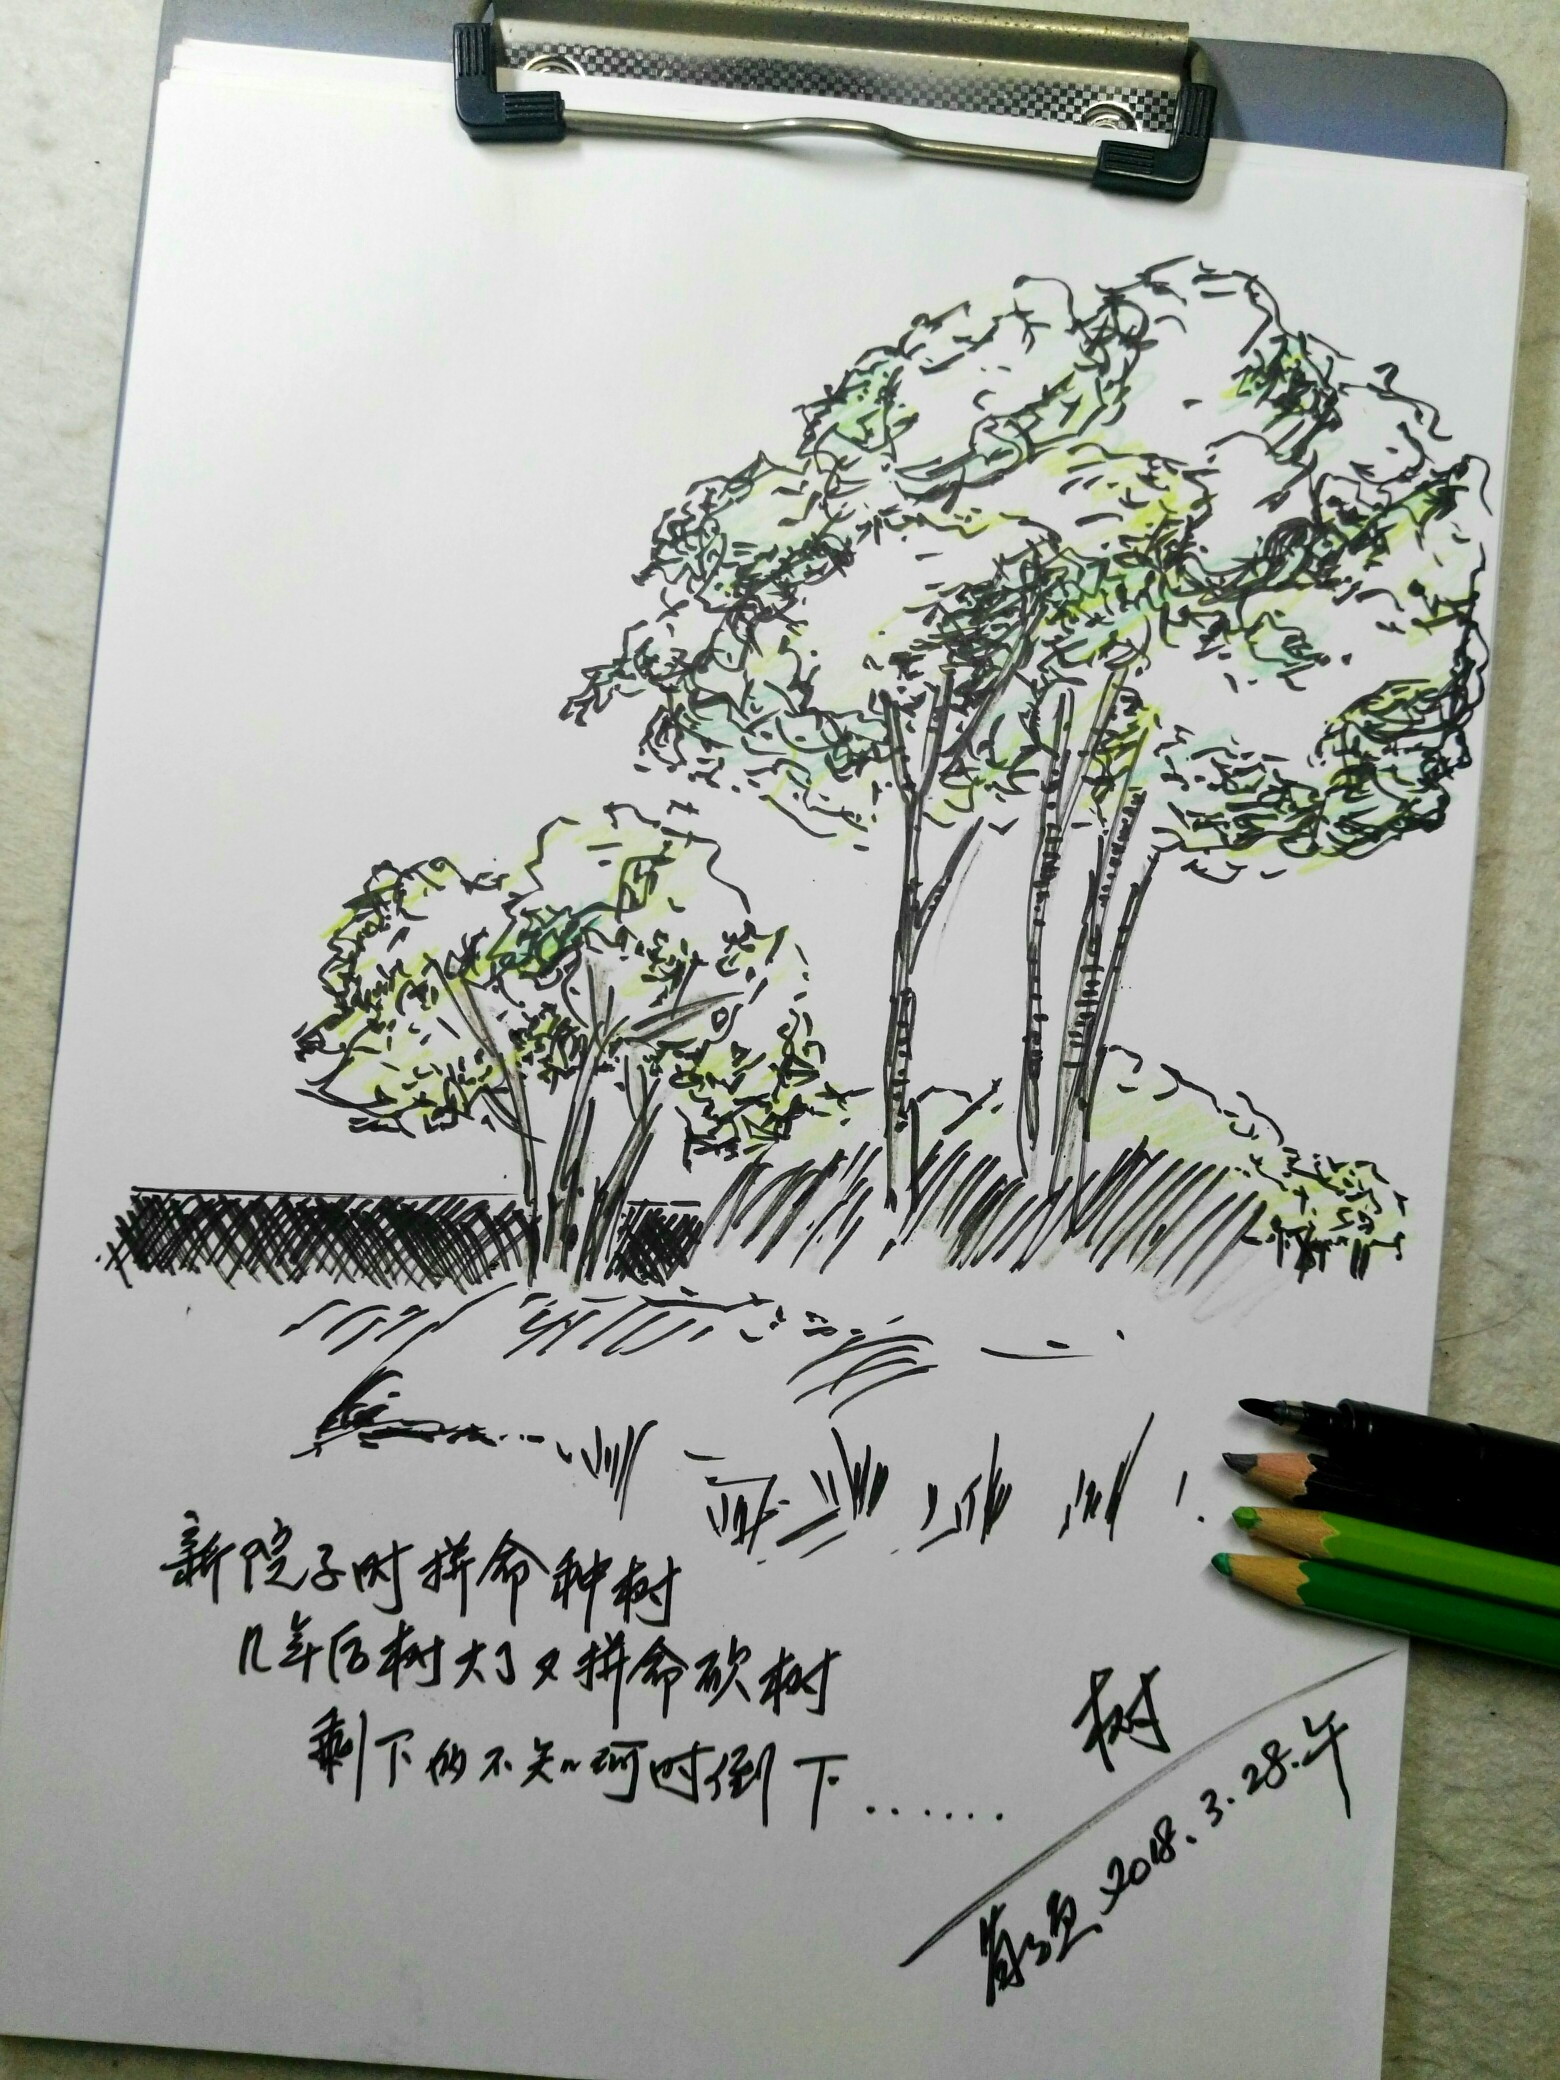 新院子时拼命种树
几年后树大了又拼命砍树
剩下的不知何时倒下……
树
2018.3.28.午